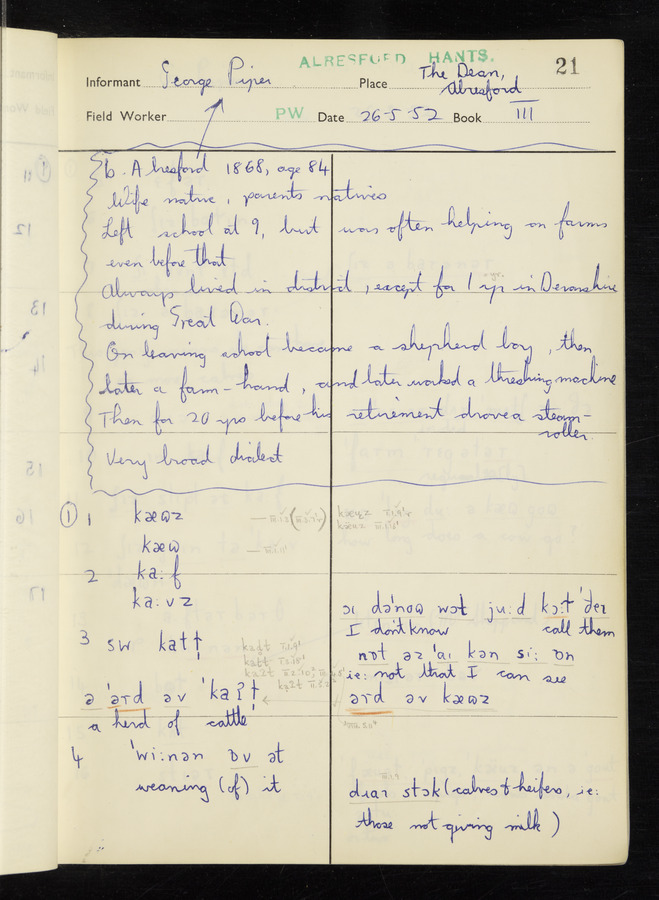 ALRESFORD HANTS.
21
Informant George Piper Place The Dean, Alresford
Field Worker PW Date 26-5-52 Book III
b. Alresford 1868, age 84
Wife native, parents natives
Left school at 9, but was often helping on farms
even before that
Always lived in district, except for 1 yr in Devonshire
during Great War.
On leaving school became a shepherd boy, then
later a farm-hand, and later worked a threshing machine
Then for 20 yrs before his retirement drove a steam-
roller.
Very broad dialect
① 1 kæʊz
kæʊ
2 ka:f
ka:vz
3 sw katt
ə 'əɾd əv 'kaʔt
a herd of cattle
4 'wi:nən ɒv ət
weaning (of) it
I don't know call them
nɒt əz 'aɪ kən si: ɒn
ie: not that I can see
əɾd əv kæʊz
stɔk (calves & heifers, ie:
those not giving milk)